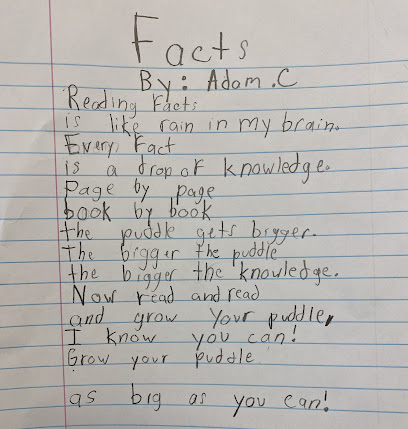 Facts
By: Adam.C
Reading Facts
is like rain in my brain.
Every Fact
is a drop of knowledge.
Page by page
book by book
the puddle gets bigger.
The bigger the puddle
the bigger the knowledge.
Now read and read
and grow your puddle,
I know you can!
Grow your puddle
as big as you can!